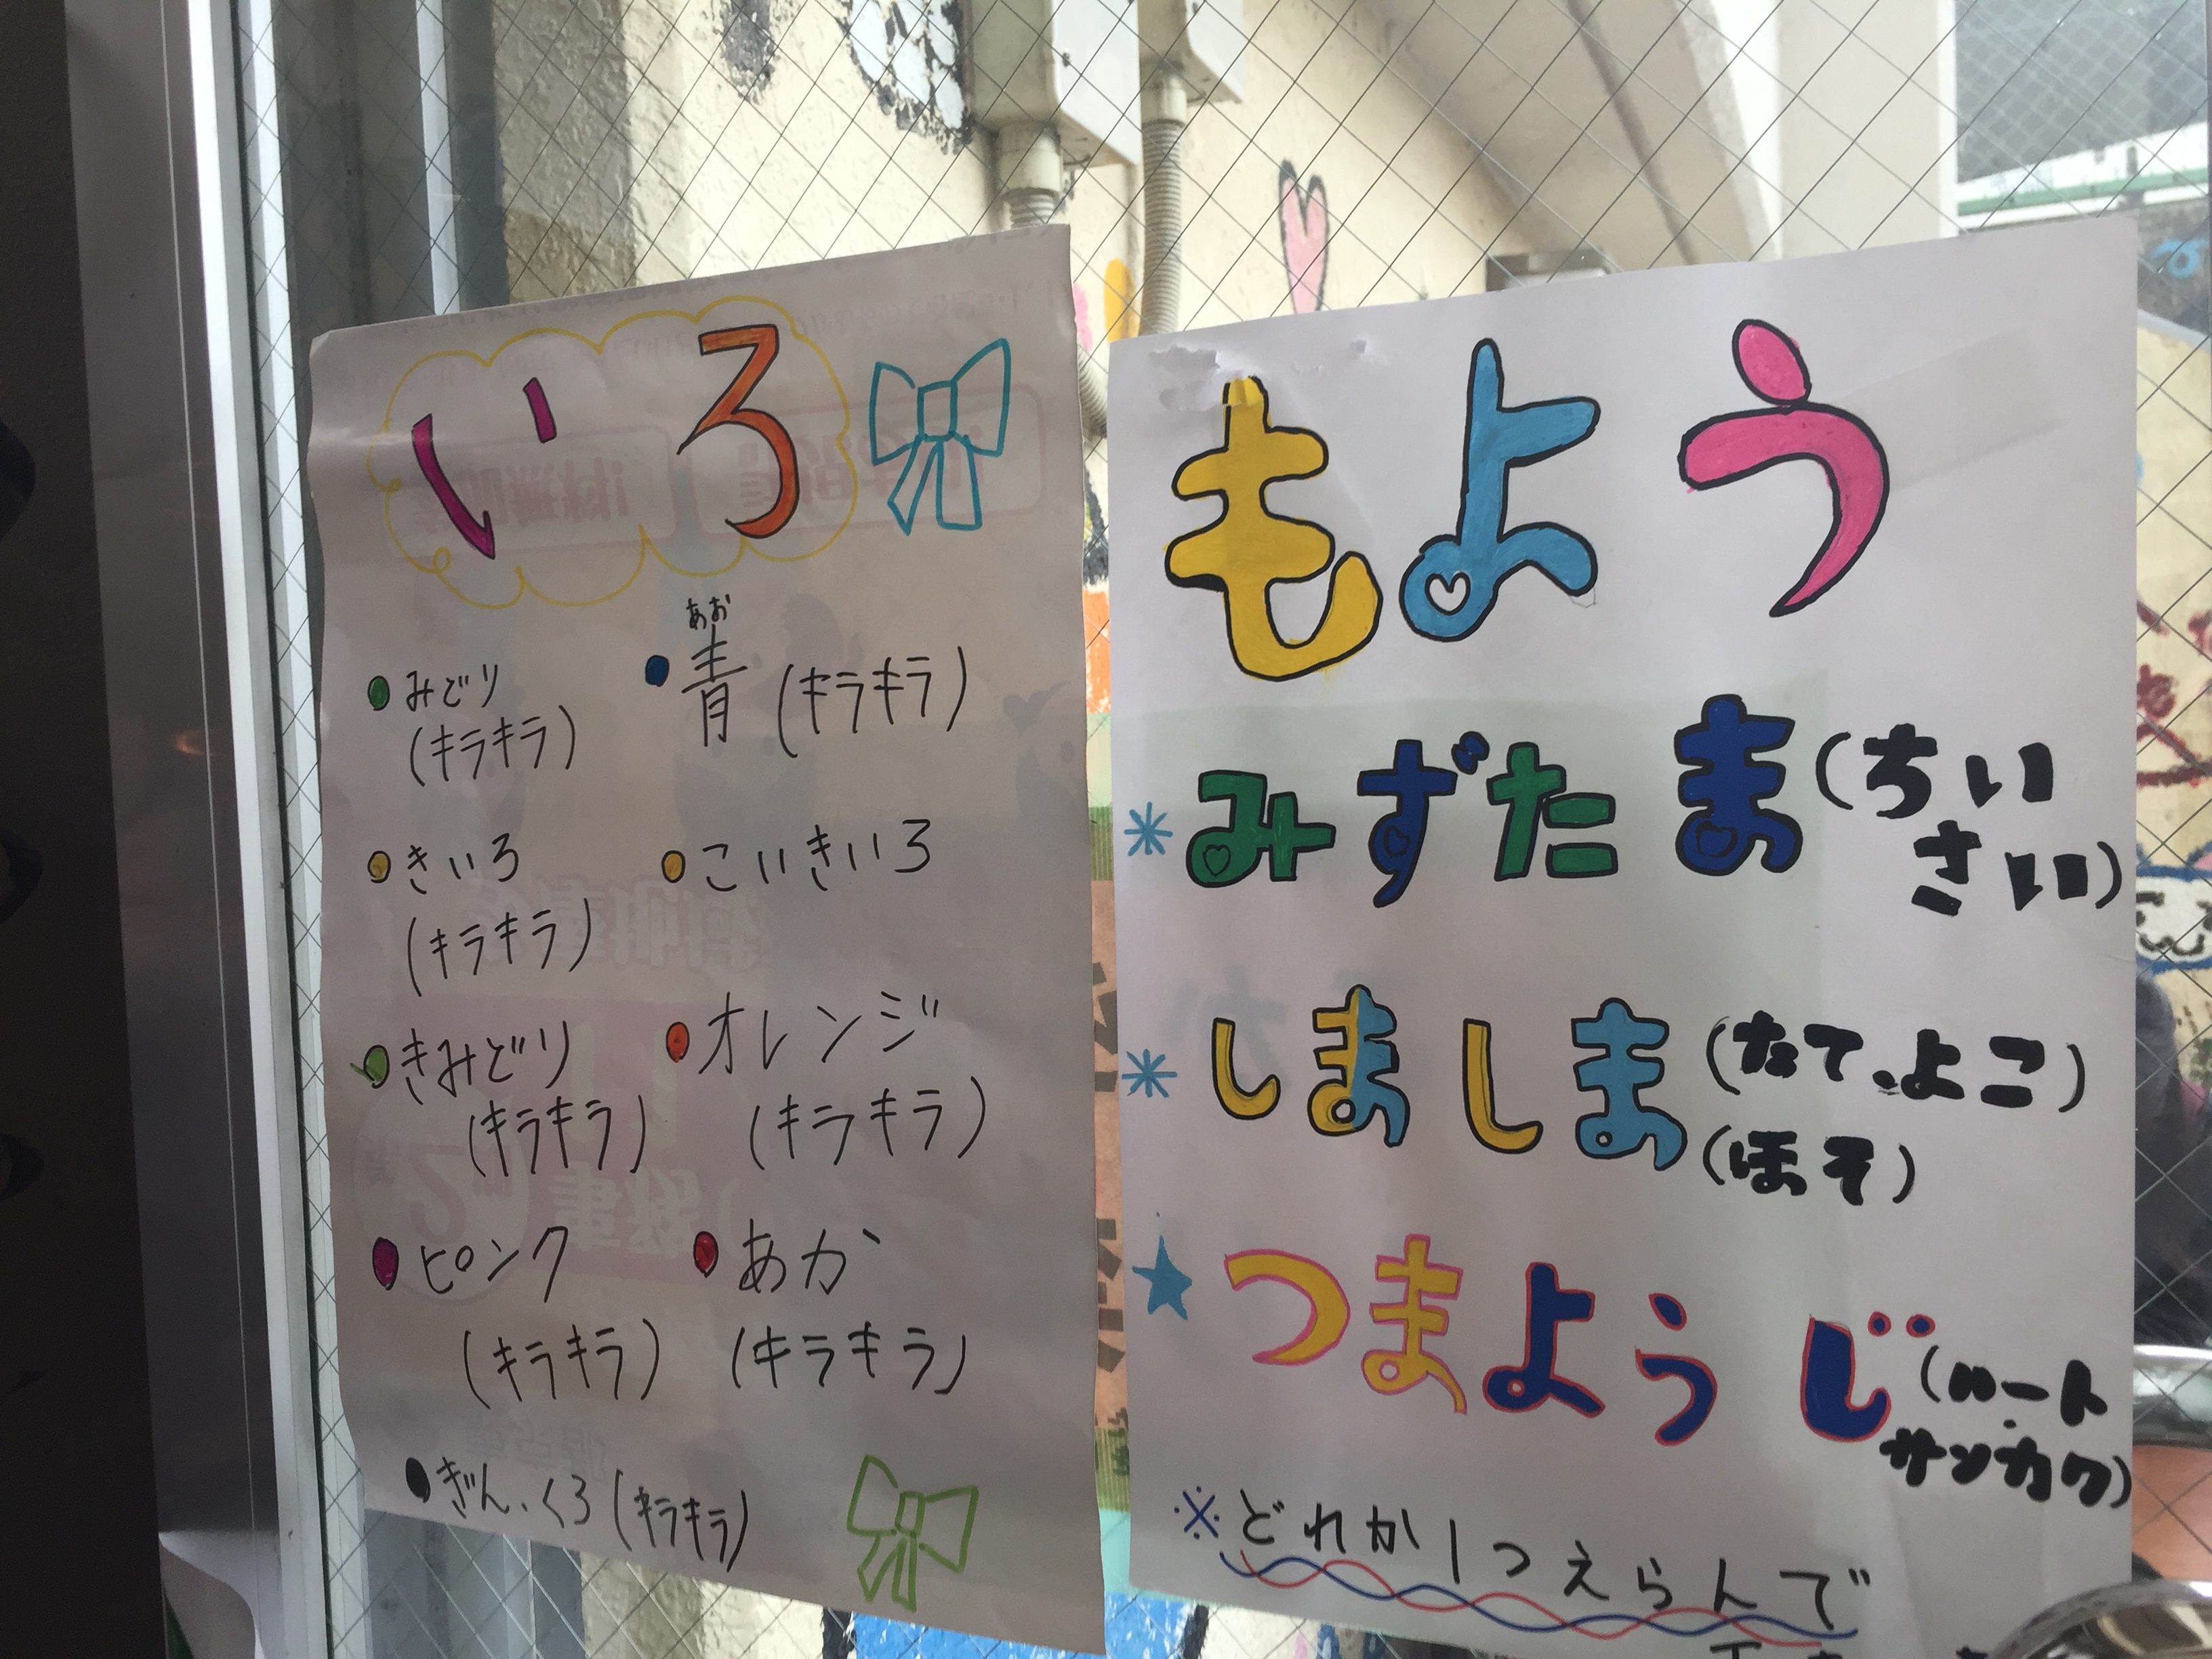 いろ
あお
みどり
(キラキラ)
青(キラキラ)
きいろ
(キラキラ)
こいきいろ
きみどり
(キラキラ)
オレンジ
(キラキラ)
ピンク
(キラキラ)
あか
(キラキラ)
ぎん、くろ(キラキラ)
もよう
＊みずたま(ちい
さい)
＊しましま(たて、よこ)
(ほそ)
★つまようじ(ハート
サンカク)
※どれか1つえらんで